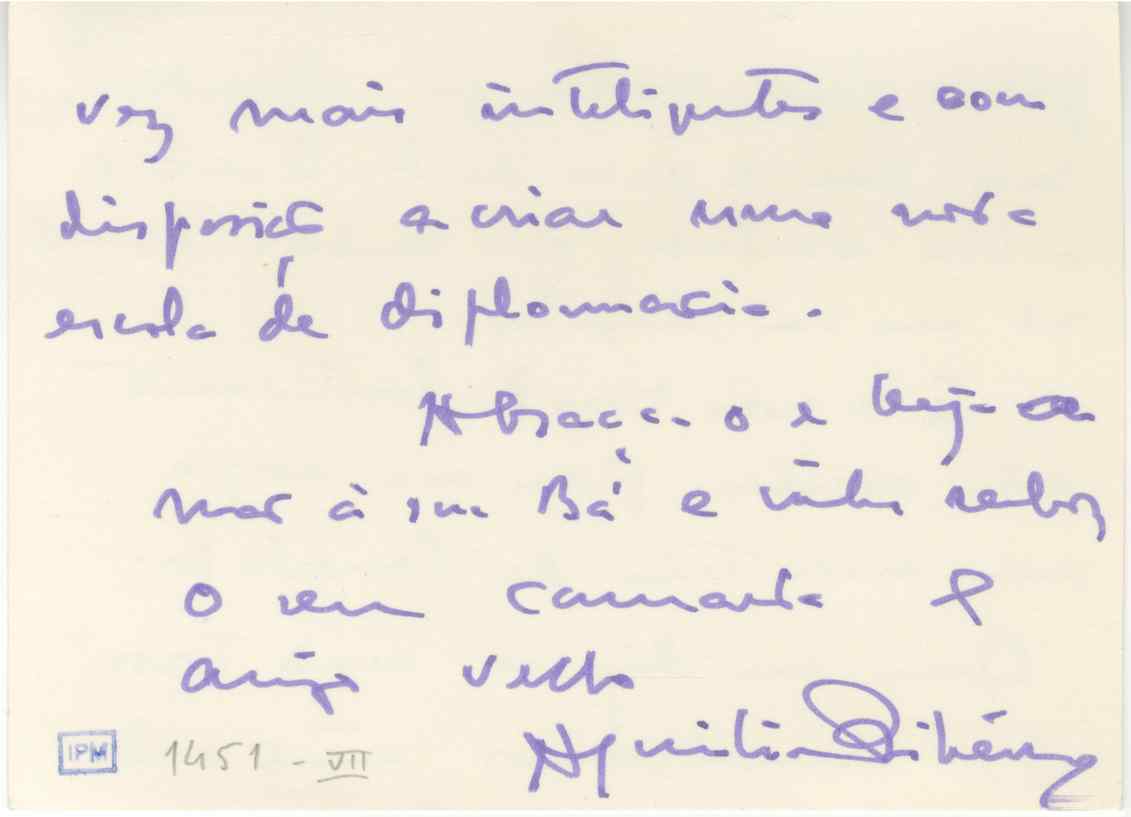 vez mais inteligentes e com
disposição a criar uma nova
escola de diplomacia.
Abraça-o e beija as
mãos à sua Bá e
o seu camarada e
amigo velho
Aquilino Ribeiro
IPM 1451 - VII